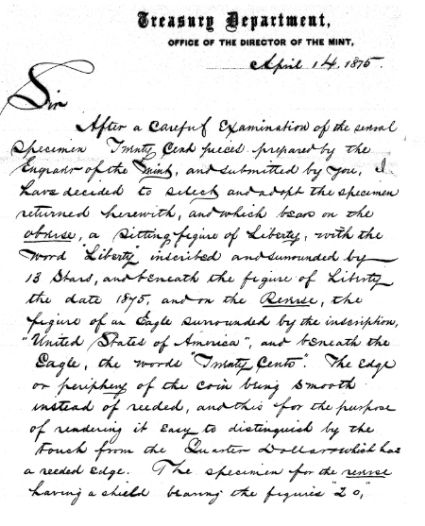 Treasury Department,
OFFICE OF THE DIRECTOR OF THE MINT,
April 14, 1875.
Sir
After a careful examination of the several
specimen Twenty Cent pieces prepared by the
Engraver of the Mint, and submitted by you, I
have decided to select and adopt the specimen
returned herewith, and which bears on the
obverse, a sitting figure of Liberty, with the
word "Liberty" inscribed and surrounded by
13 Stars, and beneath the figure of Liberty
the date 1875, and on the Reverse, the
figure of an Eagle surrounded by the inscription,
"United States of America", and beneath the
Eagle, the words "Twenty Cents". The edge
or periphery of the coin being smooth
instead of reeded, and this for the purpose
of rendering it easy to distinguish by the
touch from the Quarter Dollar which has
a reeded edge. The specimen for the reverse
having a shield bearing the figures "20,"